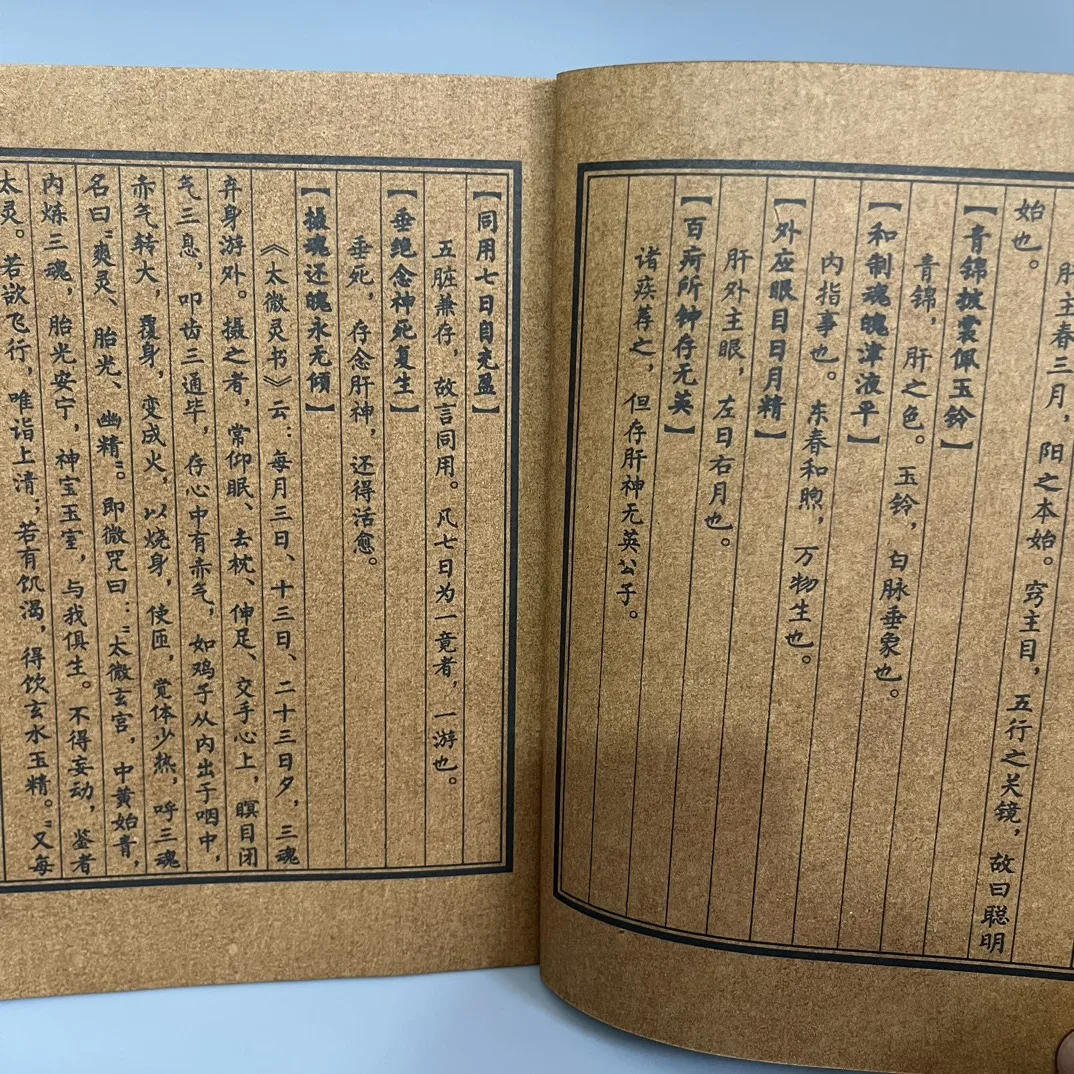 肝主春三月，阳之本始。窍主目，五行之关镜，故曰聪明
始也。
【青锦披裳佩玉铃】
青锦，肝之色。玉铃，白脉垂象也。
【和制魂魄津液平】
内指事也。东春和煦，万物生也。
【外应眼目日月精】
肝外主眼，左日右月也。
【百疴所钟存无英】
诸疾荐之，但存肝神无英公子。
【同用七日自充盈】
五脏兼存，故言同用。凡七日为一竟者，一游也。
【垂绝念神死复生】
垂死，存念肝神，还得活愈。
【摄魂还魄永无倾】
《太微灵书》云：每月三日、十三日、二十三日夕，三魂
弃身游外。摄之者，常仰眠、去枕、伸足、交手心上，瞑目闭
气三息，叩齿三通毕，存心中有赤气，如鸡子从内出于咽中，
赤气转大，覆身，变成火，以烧身，使匝，觉体少热，呼三魂
名曰“爽灵、胎光、幽精”。即微咒曰：“太微玄宫，中黄始青，
内炼三魂，胎光安宁，神宝玉室，与我俱生。不得妄动，鉴者
太灵。若欲飞行，唯诣上清；若有饥渴，得饮玄水玉精。”又每